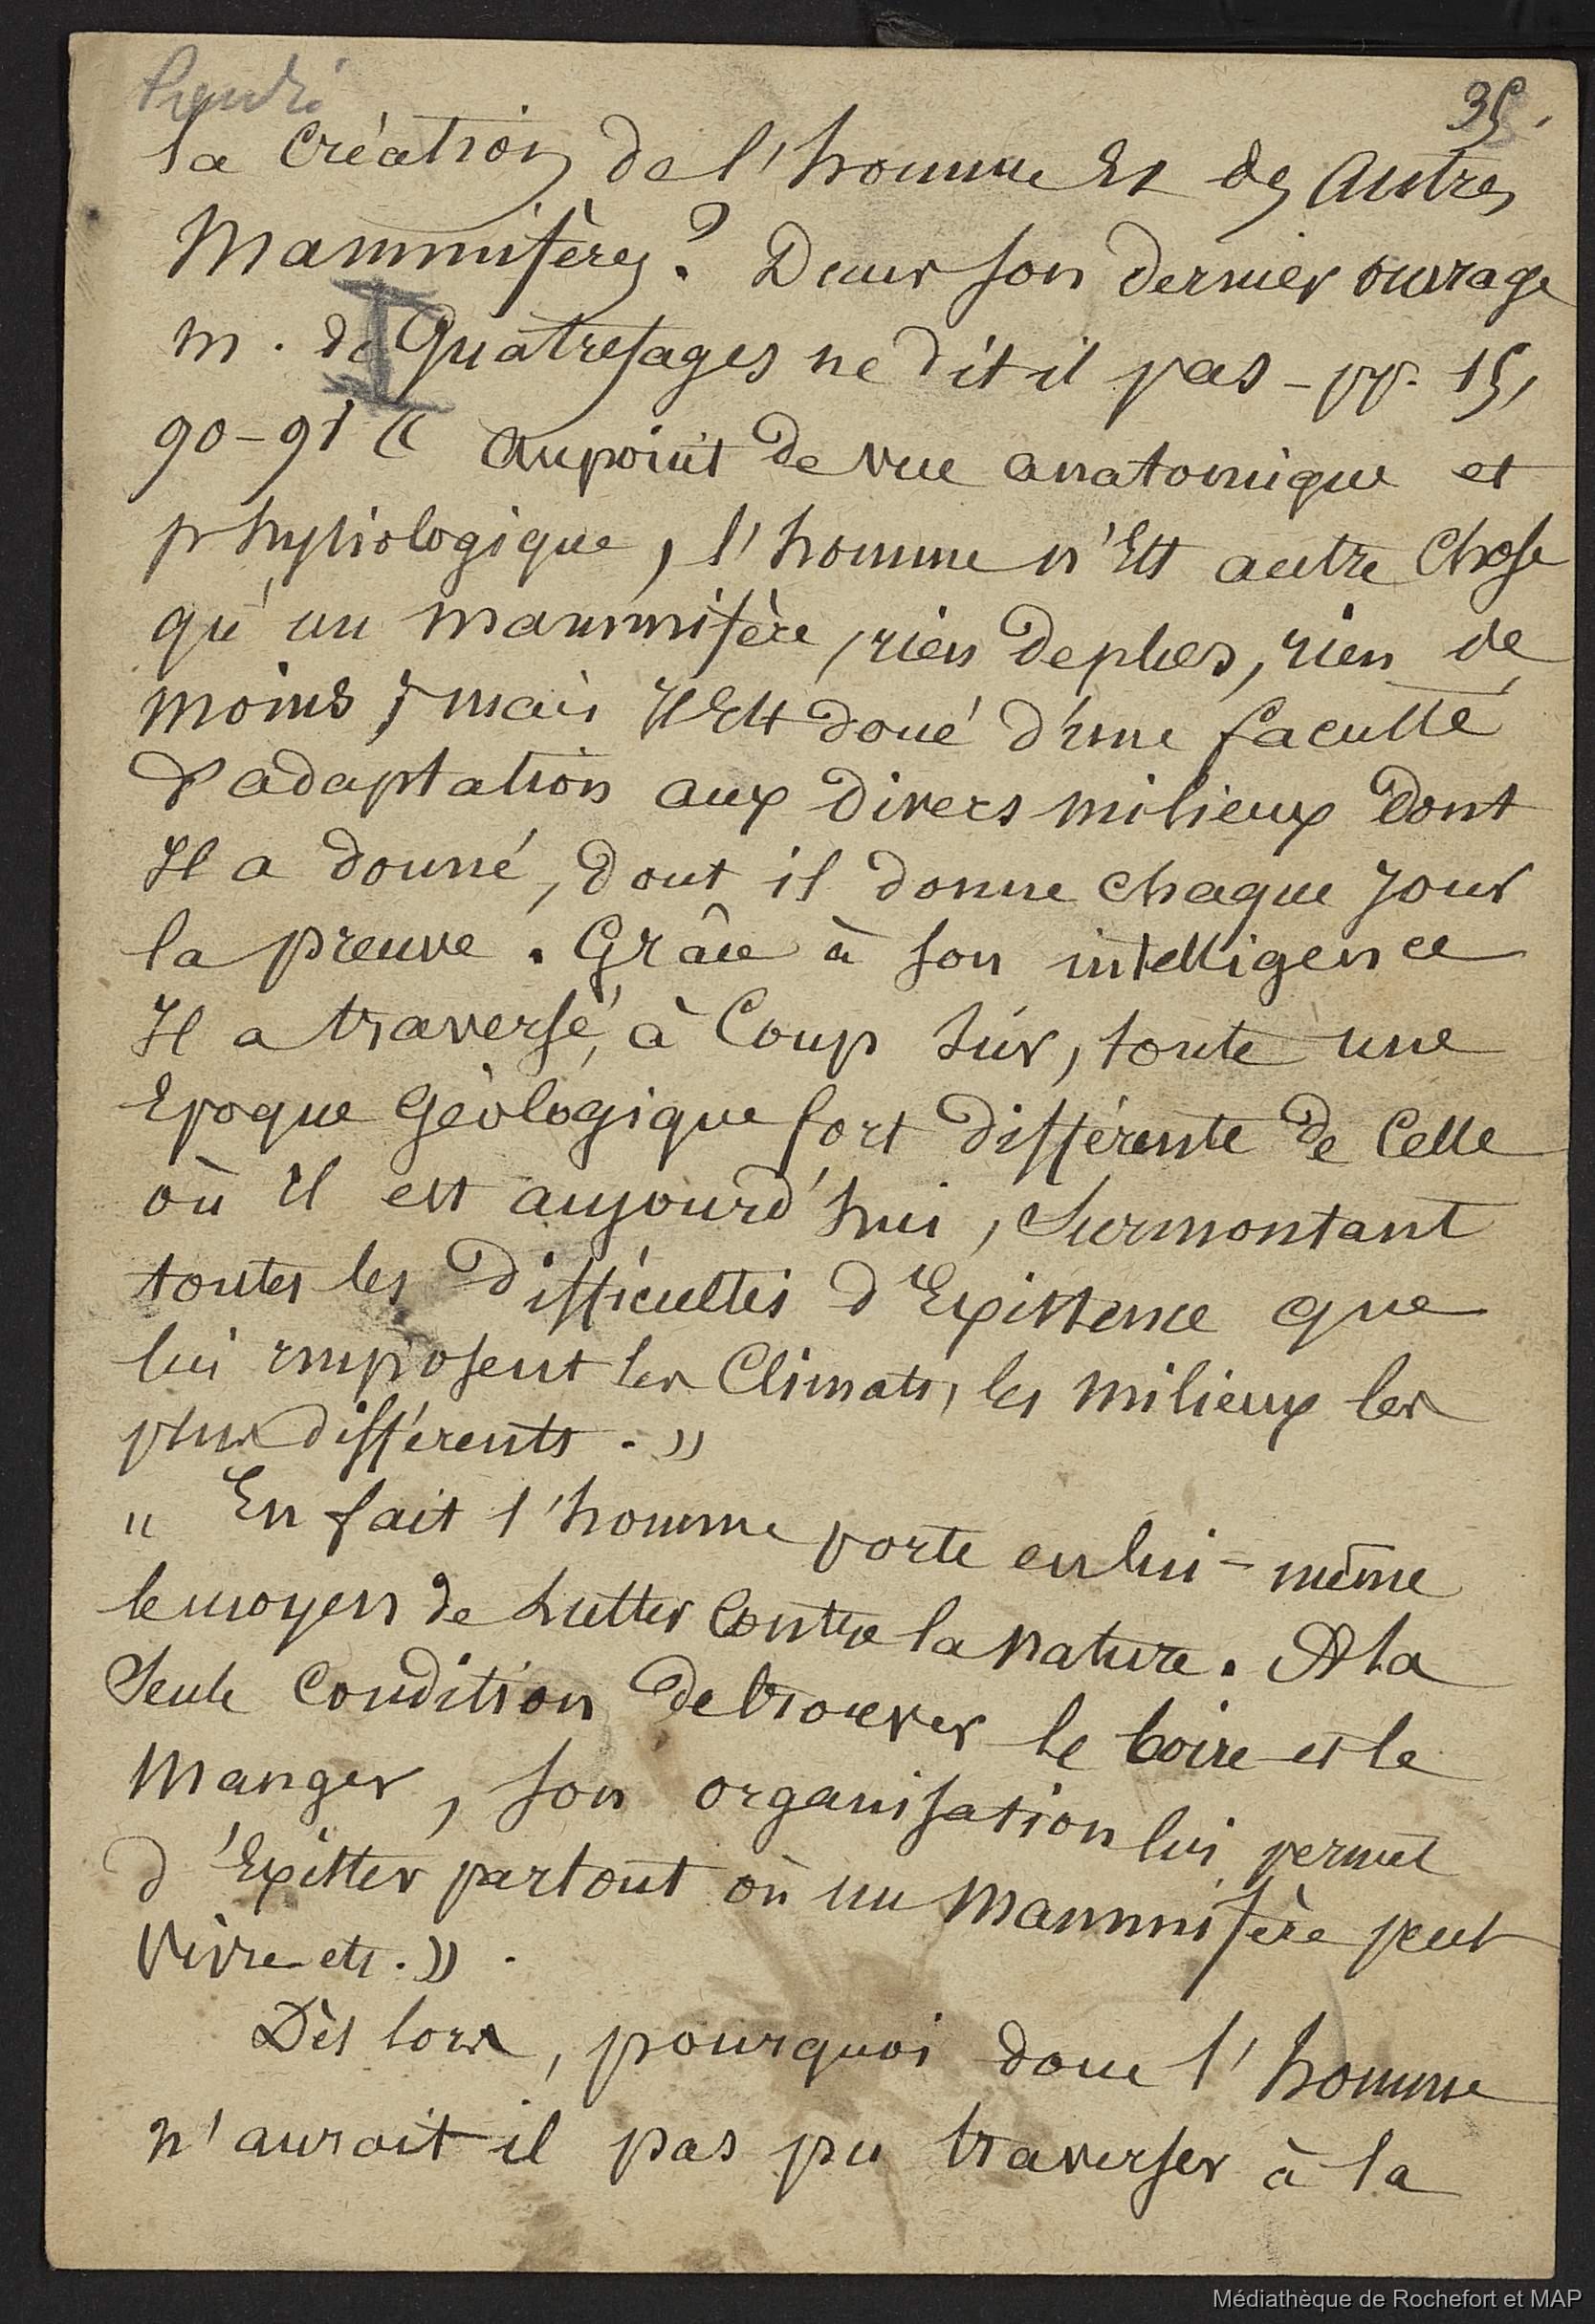 35.
la Création de l'homme Et des autres
Mammifères? Dans son dernier ouvrage
M. de Quatrefages ne dit il pas - pp. 15,
90-91 « au point de vue anatomique et
physiologique, l'homme n'Est autre Chose
qu'un Mammifère, rien de plus, rien de
moins; mais Il Est doué d'une faculté
d'adaptation aux divers milieux dont
Il a donné, dont il donne chaque jour
la preuve. Grâce à son intelligence
Il a traversé, à Coup sûr, toute une
Epoque Géologique fort différente de Celle
où Il est aujourd'hui, Surmontant
toutes les difficultés d'Existence que
lui imposent les Climats, les Milieux les
plus différents. »
" En fait l'homme porte en lui-même
le moyen de Lutter Contre la Nature. A la
Seule Condition de trouver le boire et le
Manger, son organisation lui permet
d'Exister partout où un Mammifère peut
Vivre etc. ».
Dès lors, pourquoi donc l'homme
n'aurait-il pas pu traverser à la
Médiathèque de Rochefort et MAP